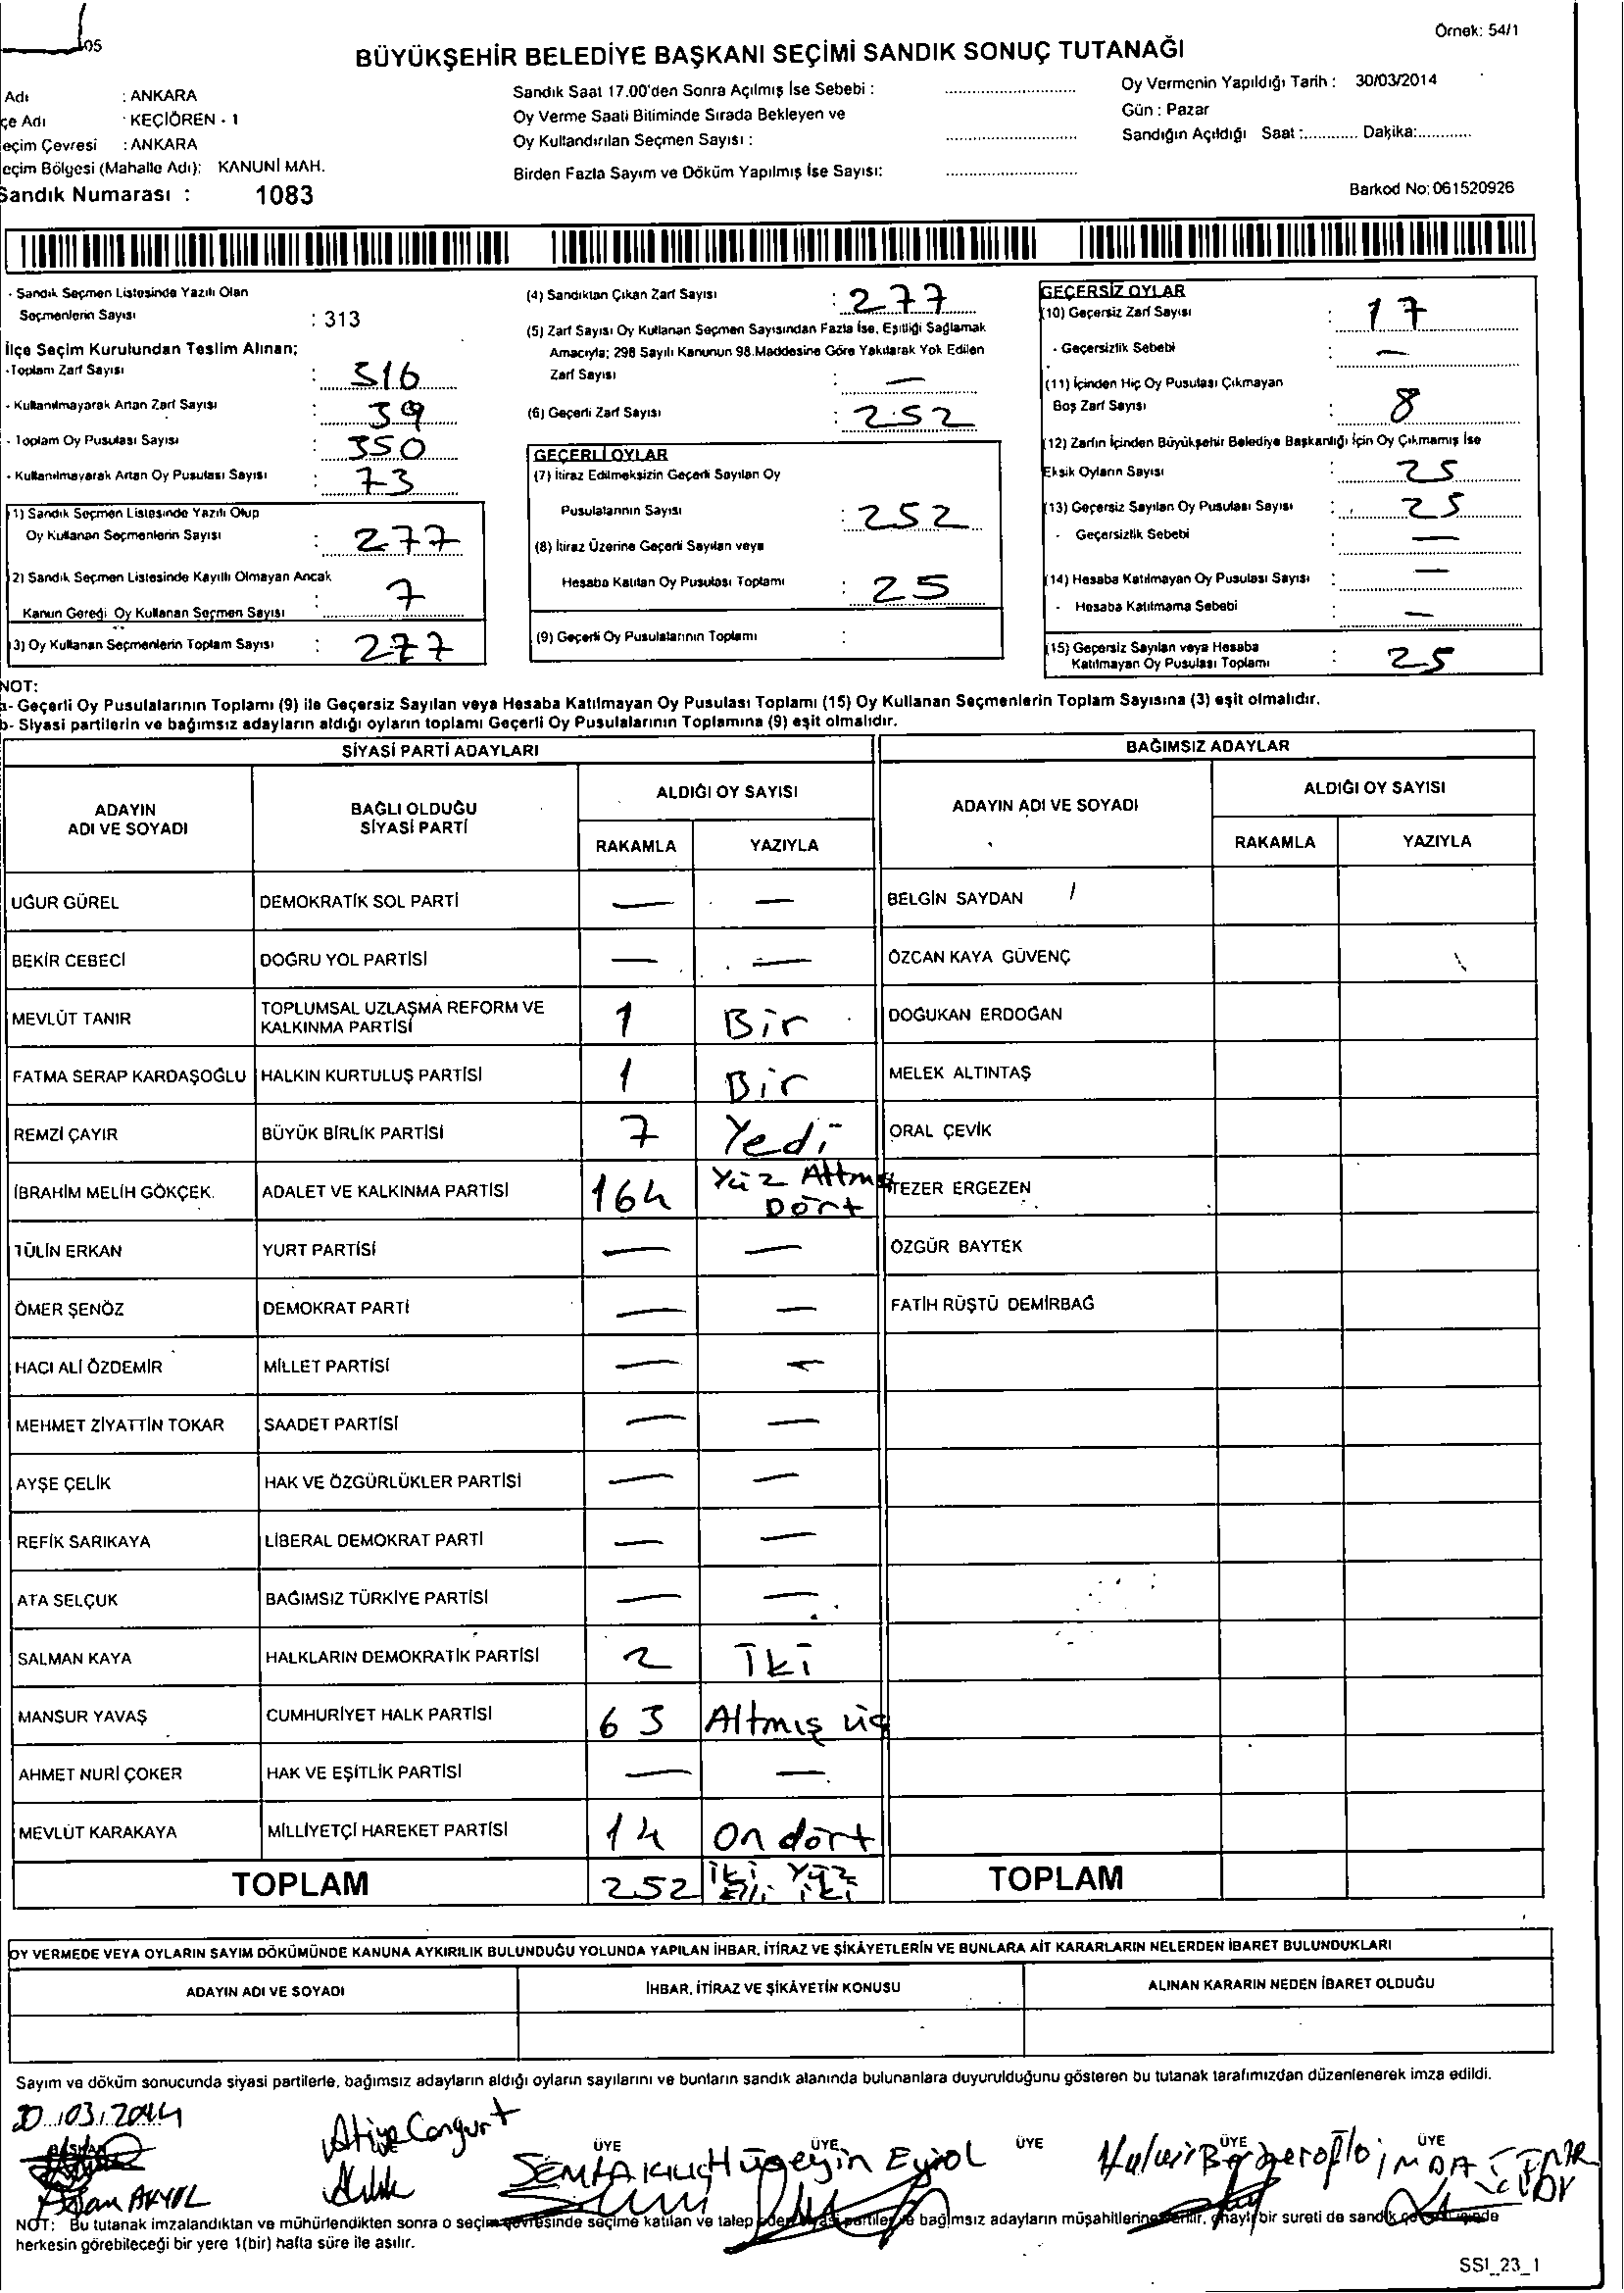 05
Örnek: 54/1
BÜYÜKŞEHİR BELEDİYE BAŞKANI SEÇİMİ SANDIK SONUÇ TUTANAĞI
Adı : ANKARA
çe Adı : KEÇİÖREN - 1
eçim Çevresi : ANKARA
eçim Bölgesi (Mahalle Adı): KANUNİ MAH.
Sandık Numarası : 1083
Sandık Saat 17.00'den Sonra Açılmış İse Sebebi :
Oy Verme Saati Bitiminde Sırada Bekleyen ve
Oy Kullandırılan Seçmen Sayısı :
Birden Fazla Sayım ve Döküm Yapılmış İse Sayısı:
Oy Vermenin Yapıldığı Tarih : 30/03/2014
Gün : Pazar
Sandığın Açıldığı Saat :........... Dakika:...........
Barkod No: 061520926
- Sandık Seçmen Listesinde Yazılı Olan
Seçmenlerin Sayısı : 313
İlçe Seçim Kurulundan Teslim Alınan;
-Toplam Zarf Sayısı : 316
- Kullanılmayarak Artan Zarf Sayısı : 39
- Toplam Oy Pusulası Sayısı : 350
- Kullanılmayarak Artan Oy Pusulası Sayısı : 73
1) Sandık Seçmen Listesinde Yazılı Olup
Oy Kullanan Seçmenlerin Sayısı : 277
2) Sandık Seçmen Listesinde Kayıtlı Olmayan Ancak
Kanun Gereği Oy Kullanan Seçmen Sayısı : 7
3) Oy Kullanan Seçmenlerin Toplam Sayısı : 277
(4) Sandıktan Çıkan Zarf Sayısı : 277
(5) Zarf Sayısı Oy Kullanan Seçmen Sayısından Fazla İse, Eşitliği Sağlamak
Amacıyla; 298 Sayılı Kanunun 98.Maddesine Göre Yakılarak Yok Edilen
Zarf Sayısı : —
(6) Geçerli Zarf Sayısı : 252
GEÇERLİ OYLAR
(7) İtiraz Edilmeksizin Geçerli Sayılan Oy
Pusulalarının Sayısı : 252
(8) İtiraz Üzerine Geçerli Sayılan veya
Hesaba Katılan Oy Pusulası Toplamı : 25
(9) Geçerli Oy Pusulalarının Toplamı :
GEÇERSİZ OYLAR
(10) Geçersiz Zarf Sayısı : 17
- Geçersizlik Sebebi : —
(11) İçinden Hiç Oy Pusulası Çıkmayan
Boş Zarf Sayısı : 8
(12) Zarfın İçinden Büyükşehir Belediye Başkanlığı İçin Oy Çıkmamış İse
Eksik Oyların Sayısı : 25
(13) Geçersiz Sayılan Oy Pusulası Sayısı : 25
- Geçersizlik Sebebi : —
(14) Hesaba Katılmayan Oy Pusulası Sayısı : —
- Hesaba Katılmama Sebebi : —
15) Geçersiz Sayılan veya Hesaba
Katılmayan Oy Pusulası Toplamı : 25
NOT:
a- Geçerli Oy Pusulalarının Toplamı (9) ile Geçersiz Sayılan veya Hesaba Katılmayan Oy Pusulası Toplamı (15) Oy Kullanan Seçmenlerin Toplam Sayısına (3) eşit olmalıdır.
b- Siyasi partilerin ve bağımsız adayların aldığı oyların toplamı Geçerli Oy Pusulalarının Toplamına (9) eşit olmalıdır.
SİYASİ PARTİ ADAYLARI BAĞIMSIZ ADAYLAR
ADAYIN ADI VE SOYADI BAĞLI OLDUĞU SİYASİ PARTİ ALDIĞI OY SAYISI ADAYIN ADI VE SOYADI ALDIĞI OY SAYISI
RAKAMLA YAZIYLA RAKAMLA YAZIYLA
UĞUR GÜREL DEMOKRATİK SOL PARTİ — — BELGİN SAYDAN
BEKİR CEBECİ DOĞRU YOL PARTİSİ — — ÖZCAN KAYA GÜVENÇ
MEVLÜT TANIR TOPLUMSAL UZLAŞMA REFORM VE KALKINMA PARTİSİ 1 Bir DOĞUKAN ERDOĞAN
FATMA SERAP KARDAŞOĞLU HALKIN KURTULUŞ PARTİSİ 1 Bir MELEK ALTINTAŞ
REMZİ ÇAYIR BÜYÜK BİRLİK PARTİSİ 7 Yedi ORAL ÇEVİK
İBRAHİM MELİH GÖKÇEK. ADALET VE KALKINMA PARTİSİ 164 Yüz Altmış Dört TEZER ERGEZEN
TÜLİN ERKAN YURT PARTİSİ — — ÖZGÜR BAYTEK
ÖMER ŞENÖZ DEMOKRAT PARTİ — — FATİH RÜŞTÜ DEMİRBAĞ
HACI ALİ ÖZDEMİR MİLLET PARTİSİ — —
MEHMET ZİYATTİN TOKAR SAADET PARTİSİ — —
AYŞE ÇELİK HAK VE ÖZGÜRLÜKLER PARTİSİ — —
REFİK SARIKAYA LİBERAL DEMOKRAT PARTİ — —
ATA SELÇUK BAĞIMSIZ TÜRKİYE PARTİSİ — —
SALMAN KAYA HALKLARIN DEMOKRATİK PARTİSİ 2 İki
MANSUR YAVAŞ CUMHURİYET HALK PARTİSİ 63 Altmış üç
AHMET NURİ ÇOKER HAK VE EŞİTLİK PARTİSİ — —
MEVLÜT KARAKAYA MİLLİYETÇİ HAREKET PARTİSİ 14 On dört
TOPLAM 252 İki Yüz Elli iki TOPLAM
OY VERMEDE VEYA OYLARIN SAYIM DÖKÜMÜNDE KANUNA AYKIRILIK BULUNDUĞU YOLUNDA YAPILAN İHBAR, İTİRAZ VE ŞİKÂYETLERİN VE BUNLARA AİT KARARLARIN NELERDEN İBARET BULUNDUKLARI
ADAYIN ADI VE SOYADI İHBAR, İTİRAZ VE ŞİKÂYETİN KONUSU ALINAN KARARIN NEDEN İBARET OLDUĞU
Sayım ve döküm sonucunda siyasi partilerle, bağımsız adayların aldığı oyların sayılarını ve bunların sandık alanında bulunanlara duyurulduğunu gösteren bu tutanak tarafımızdan düzenlenerek imza edildi.
03.2014
BAŞKAN ÜYE ÜYE ÜYE ÜYE ÜYE
AKYOL Hüseyin
NOT: Bu tutanak imzalandıktan ve mühürlendikten sonra o seçim çevresinde seçime katılan ve talep eden siyasi partiler ve bağımsız adayların müşahitlerine verilir, onaylı bir sureti de sandık
herkesin görebileceği bir yere 1(bir) hafta süre ile asılır.
SS1_23_1